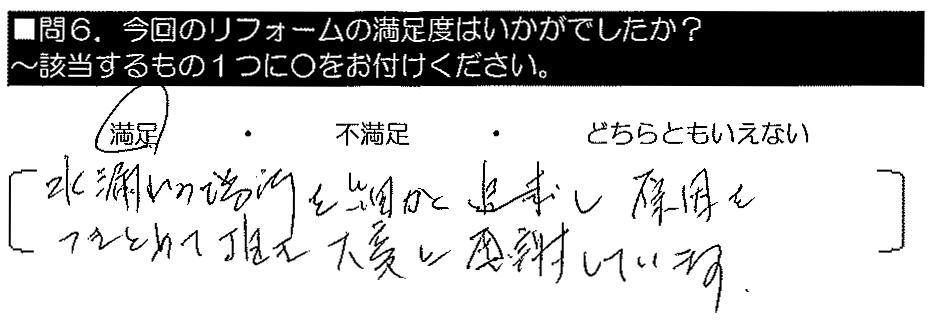 ■問6. 今回のリフォームの満足度はいかがでしたか?
~該当するもの1つに○をお付けください。
満足 ・ 不満足 ・ どちらともいえない
水漏れの場所を細かく追求し 原因を
つきとめて頂き 大変に感謝しています.